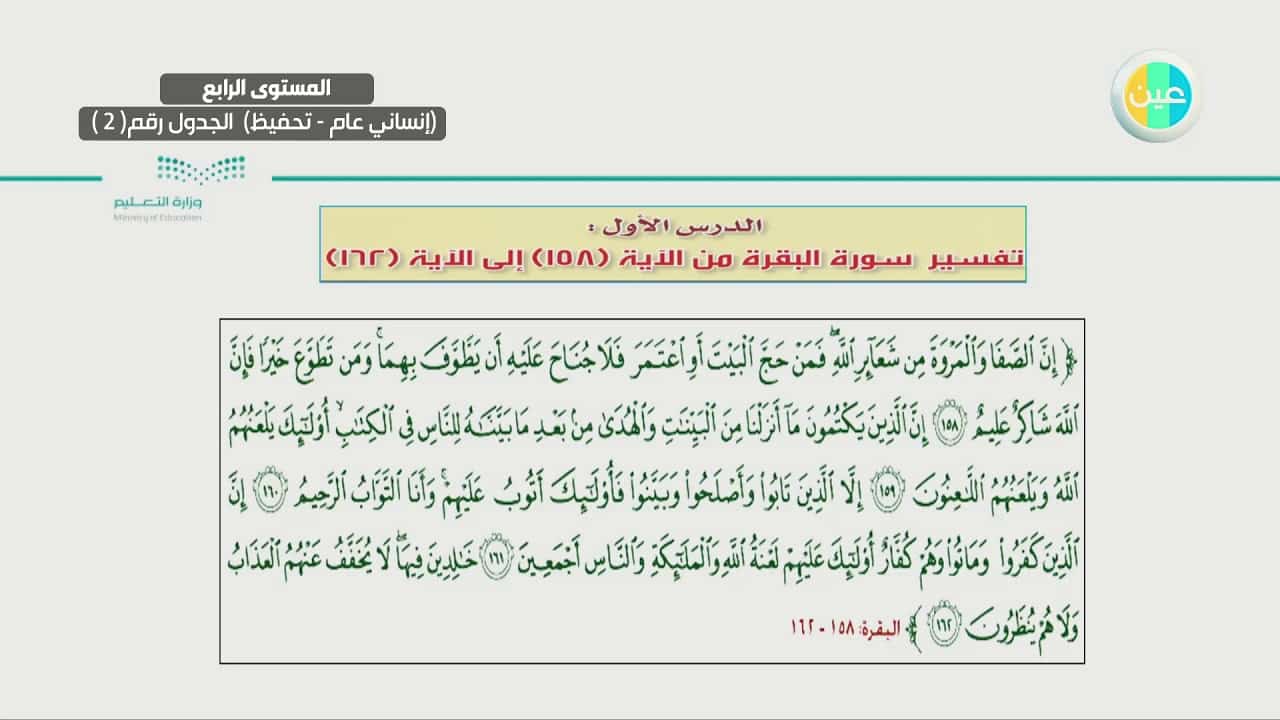 المستوى الرابع
(إنساني عام - تحفيظ) الجدول رقم( 2 )
عين
وزارة التعليم
Ministry of Education
الدرس الأول :
تفسير سورة البقرة من الآية (١٥٨) إلى الآية (١٦٢)
﴿ إِنَّ الصَّفَا وَالْمَرْوَةَ مِن شَعَآئِرِ اللَّهِ ۖ فَمَنْ حَجَّ الْبَيْتَ أَوِ اعْتَمَرَ فَلَا جُنَاحَ عَلَيْهِ أَن يَطَّوَّفَ بِهِمَا ۚ وَمَن تَطَوَّعَ خَيْرًا فَإِنَّ
اللَّهَ شَاكِرٌ عَلِيمٌ ١٥٨ إِنَّ الَّذِينَ يَكْتُمُونَ مَآ أَنزَلْنَا مِنَ الْبَيِّنَٰتِ وَالْهُدَىٰ مِنۢ بَعْدِ مَا بَيَّنَّٰهُ لِلنَّاسِ فِى الْكِتَٰبِ ۙ أُولَٰٓئِكَ يَلْعَنُهُمُ
اللَّهُ وَيَلْعَنُهُمُ اللَّٰعِنُونَ ١٥٩ إِلَّا الَّذِينَ تَابُوا۟ وَأَصْلَحُوا۟ وَبَيَّنُوا۟ فَأُو۟لَٰٓئِكَ أَتُوبُ عَلَيْهِمْ ۚ وَأَنَا التَّوَّابُ الرَّحِيمُ ١٦٠ إِنَّ
الَّذِينَ كَفَرُوا۟ وَمَاتُوا۟ وَهُمْ كُفَّارٌ أُو۟لَٰٓئِكَ عَلَيْهِمْ لَعْنَةُ اللَّهِ وَالْمَلَٰٓئِكَةِ وَالنَّاسِ أَجْمَعِينَ ١٦١ خَٰلِدِينَ فِيهَا ۖ لَا يُخَفَّفُ عَنْهُمُ الْعَذَابُ
وَلَا هُمْ يُنظَرُونَ ١٦٢ ﴾ البقرة: ١٥٨ - ١٦٢